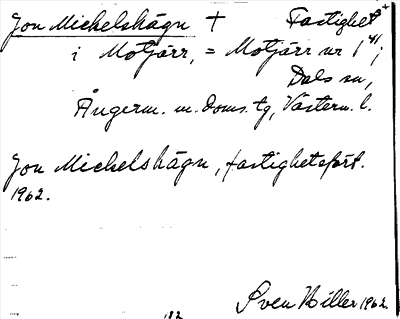 Jon Michelshägn + Fastighet
i Motjärr, = Motjärr nr 1 41;
Dals sn,
Ångerm. m. doms. tg, Västern. l.
Jon Michelshägn, fastighetsfört.
1962.
Sven Hiller 1962.